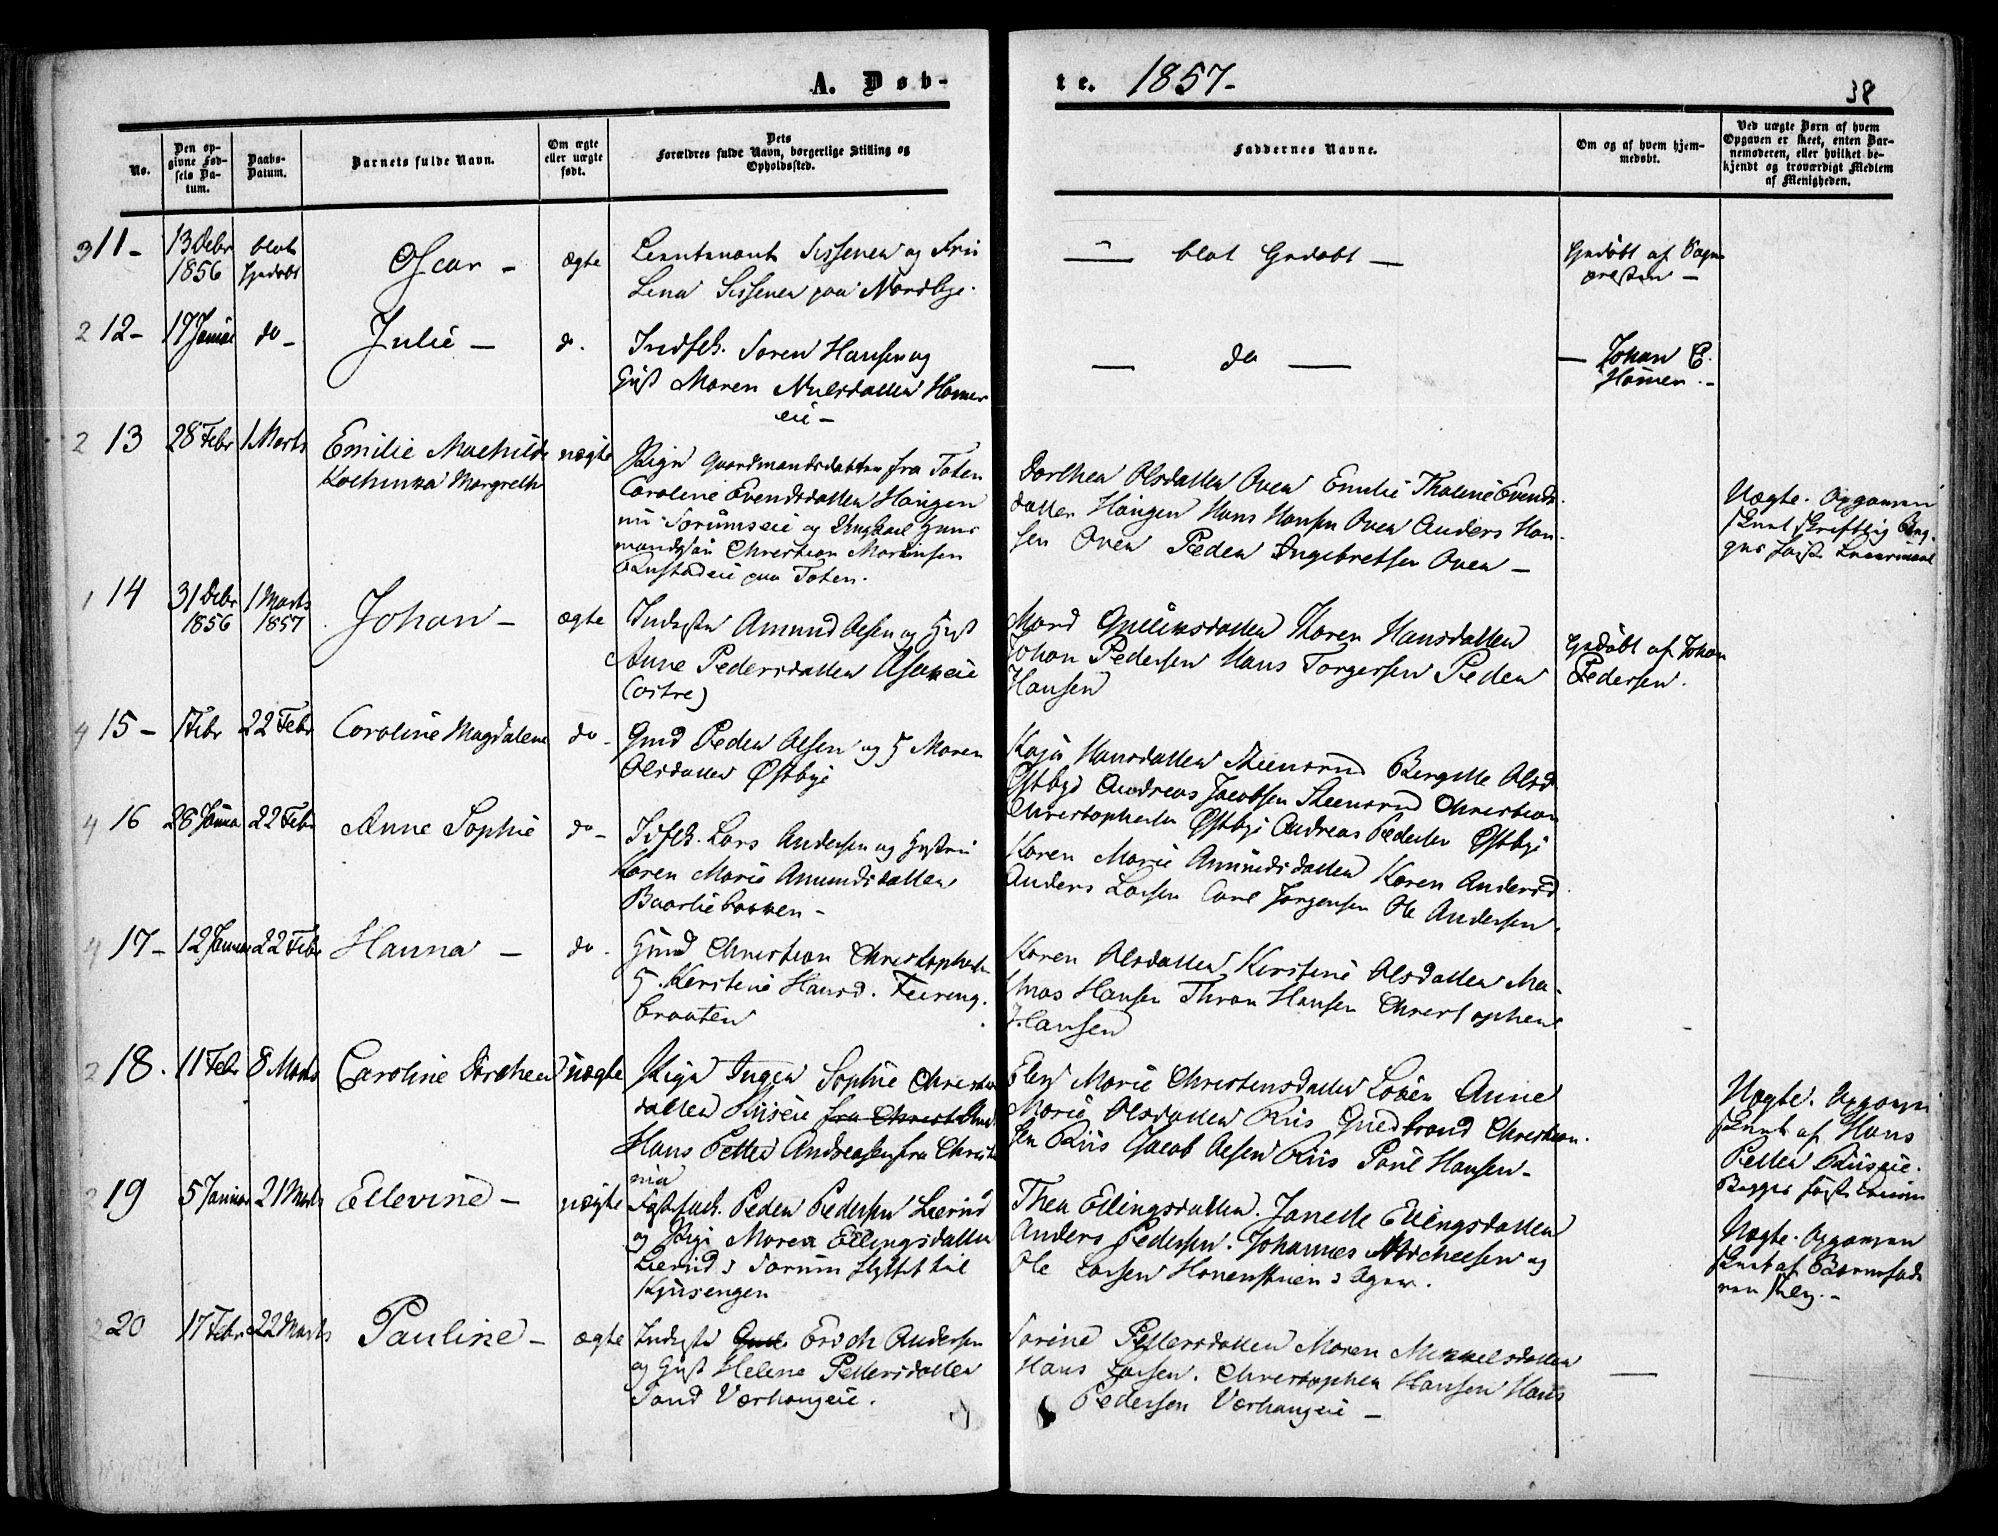 A. Døb-
te. 1857-
38
No.
Den op-
givne Fød-
sels Da-
tum.
Daabs-
Datum.
Barnets fulde Navn.
Om ægte
eller uægte
født.
Dets
Forældres fulde Navn, borgerlige Stilling og
Opholdssted.
Faddernes Navne.
Om og af hvem hjem-
medøbt.
Ved uægte Børn af hvem
Opgaven er skeet, enten Bar-
nemoderen, eller hvilket be-
kjendt og troværdigt Medlem
af Menigheden.
3 11 -
13 Debr
1856
blot
Oscar -
ægte
Lieutenant Sissener og Fru
Lina Sissener paa Nordbye.
— blot —
af Sogne
præsten —
2 12 -
17 Januar
do -
Julie -
d.
Indsk. Soren Hansen og
Gust Maren Nielsdatter Homer
eie -
— do —
— Johan E.
Homer. -
2 13
28 Febr
1 Marts
Emilie Mathilde
Kathinka Margreth
uægte
Pige Gaardmandsdatter fra Toten
Caroline Evendsdatter Haugen
nu Sorumseie og Ungkarl
Christian Martinsen
paa Toten.
Dorthea Olsdatter Oven Emilie Thaline Evends
datter Haugen Hans Hansen Oven Anders Han
sen Oven Peder Ingebretsen Oven -
Uægte. Opgaven
skeet skriftlig
1 14
31 Debr
1856
1 Marts
1857
Johan -
ægte
Inderste Amund Olsen og Gust
Anne Pedersdatter Asakeie
(ostre)
Mari Gulliksdatter Karen Hansdatter
Johan Pedersen Hans Torgersen Peder
Hansen
af Johan
Pedersen.
4 15 -
1 Febr
22 Febr
Caroline Magdalene
do -
Gmd Peder Olsen og H Maren
Olsdatter Østbye
Kaja Hansdatter Steensrud Birgitte Olsd
Østbye Andreas Jacobsen Steensrud Christian
Christophersen Østbye Andreas Pedersen Østbye
4 16
28 Janua
22 Febr
Anne Sophie
do -
Idsk. Lars Andersen og Hustru
Karen Marie Amundsdatter
Baarliebakken -
Karen Marie Amundsdatter Karen Andersd
Anders Larsen Carl Jørgensen Ole Andersen.
4 17 -
12 Januar
22 Febr
Hanna -
do -
Gmd Christian Christophersen
H. Kirstine Hansd. Feiring.
braaten
Karen Olsdatter Kirstine Olsdatter Ma-
thias Hansen Thron Hansen Christopher
Hansen
2 18.
11 Febr
8 Marts
Caroline Dorthea
uægte
Pige Inger Sophie Christians
datter Riiseie fra Christ
Hans Petter Andreassen fra Christia
nia
Elen Marie Christensdatter Løren Anne
Marie Olsdatter Riis Gudbrand Christian-
sen Riis Jacob Olsen Riis Paul Hansen -
Uægte. Opgaven
skeet af Hans
Petter Riiseie.
Begges første
2 19
5 Januar
21 Marts
Ellevine -
uægte
Peder Pedersen Lierud
og Pige Maren Ellingsdatter
Lierud i Sorum flyttet til
Kjusengen
Thea Ellingsdatter. Janette Ellingsdatter
Anders Pedersen. Johannes Michelsen og
Ole Larsen
Uægte. Opgaven
skeet af Barnefade
ren
2 20
17 Febr
22 Marts
Pauline -
ægte
Inderste Erich Andersen
og Gust Helene Pettersdatter
Sand Værhaugeie.
Sorine Pettersdatter Maren Mikkelsdatter
Hans Larsen. Christopher Hansen Hans
Pedersen Værhaugeie -